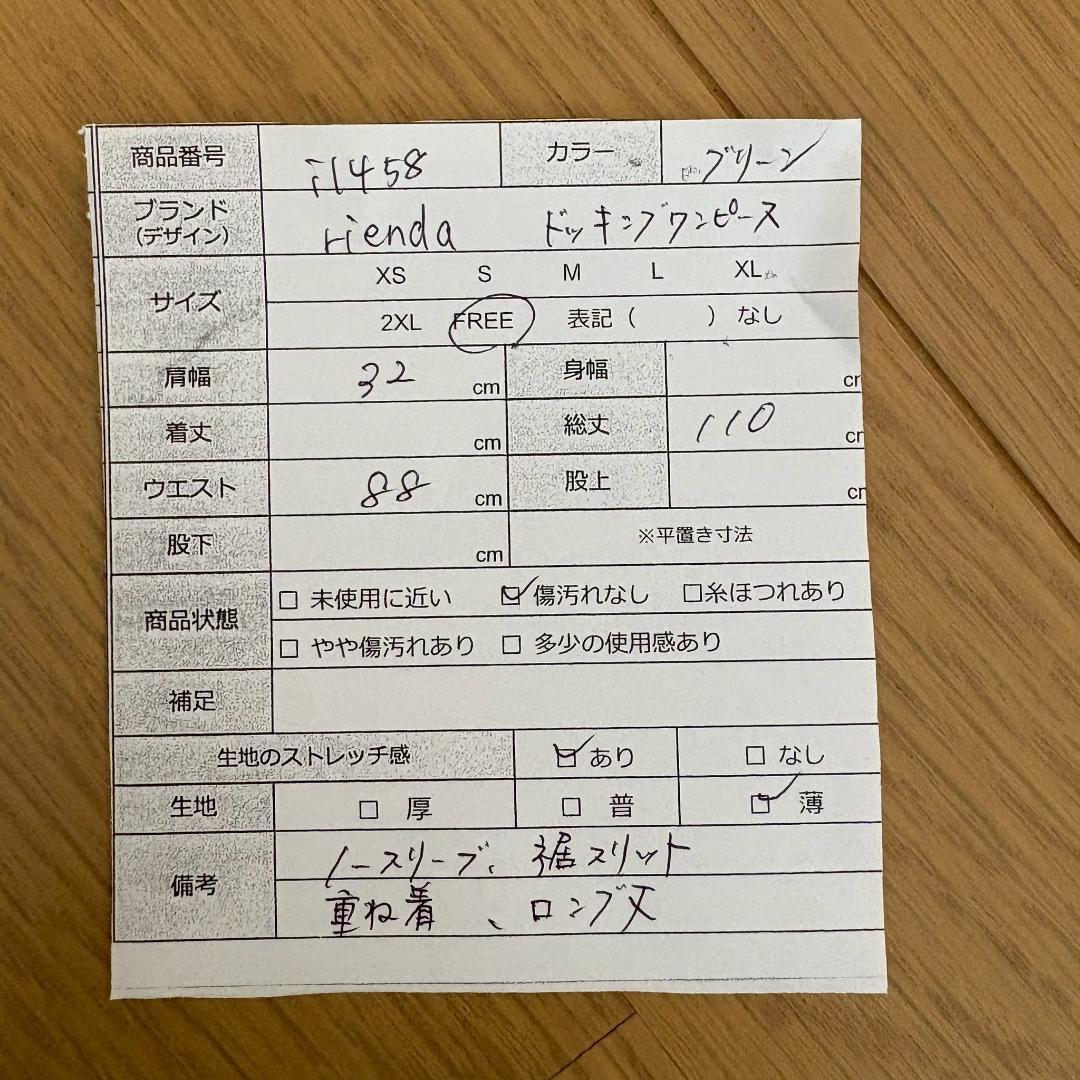 商品番号 i1458 カラー グリーン
ブランド rienda ドッキングワンピース
(デザイン)
サイズ XS S M L XL
2XL FREE 表記 ( ) なし
肩幅 32 cm 身幅 cr
着丈 cm 総丈 110 cr
ウエスト 88 cm 股上 cr
股下 cm ※平置き寸法
商品状態 □ 未使用に近い ☑ 傷汚れなし □ 糸ほつれあり
□ やや傷汚れあり □ 多少の使用感あり
補足
生地のストレッチ感 ☑ あり □ なし
生地 □ 厚 □ 普 ☑ 薄
備考 ノースリーブ、裾スリット
重ね着、ロング丈